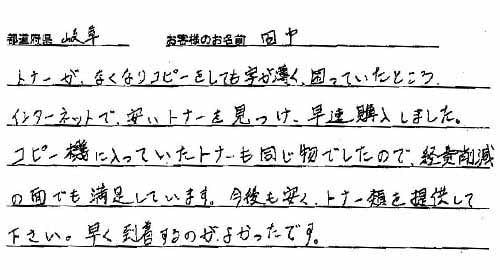 都道府県 岐阜 お客様のお名前 田中
トナーが、なくなりコピーをしても字が薄く、困っていたところ、
インターネットで、安いトナーを見つけ、早速購入しました。
コピー機に入っていたトナーも同じ物でしたので、経費削減
の面でも満足しています。今後も安く、トナー類を提供して
下さい。早く到着するのが、よかったです。